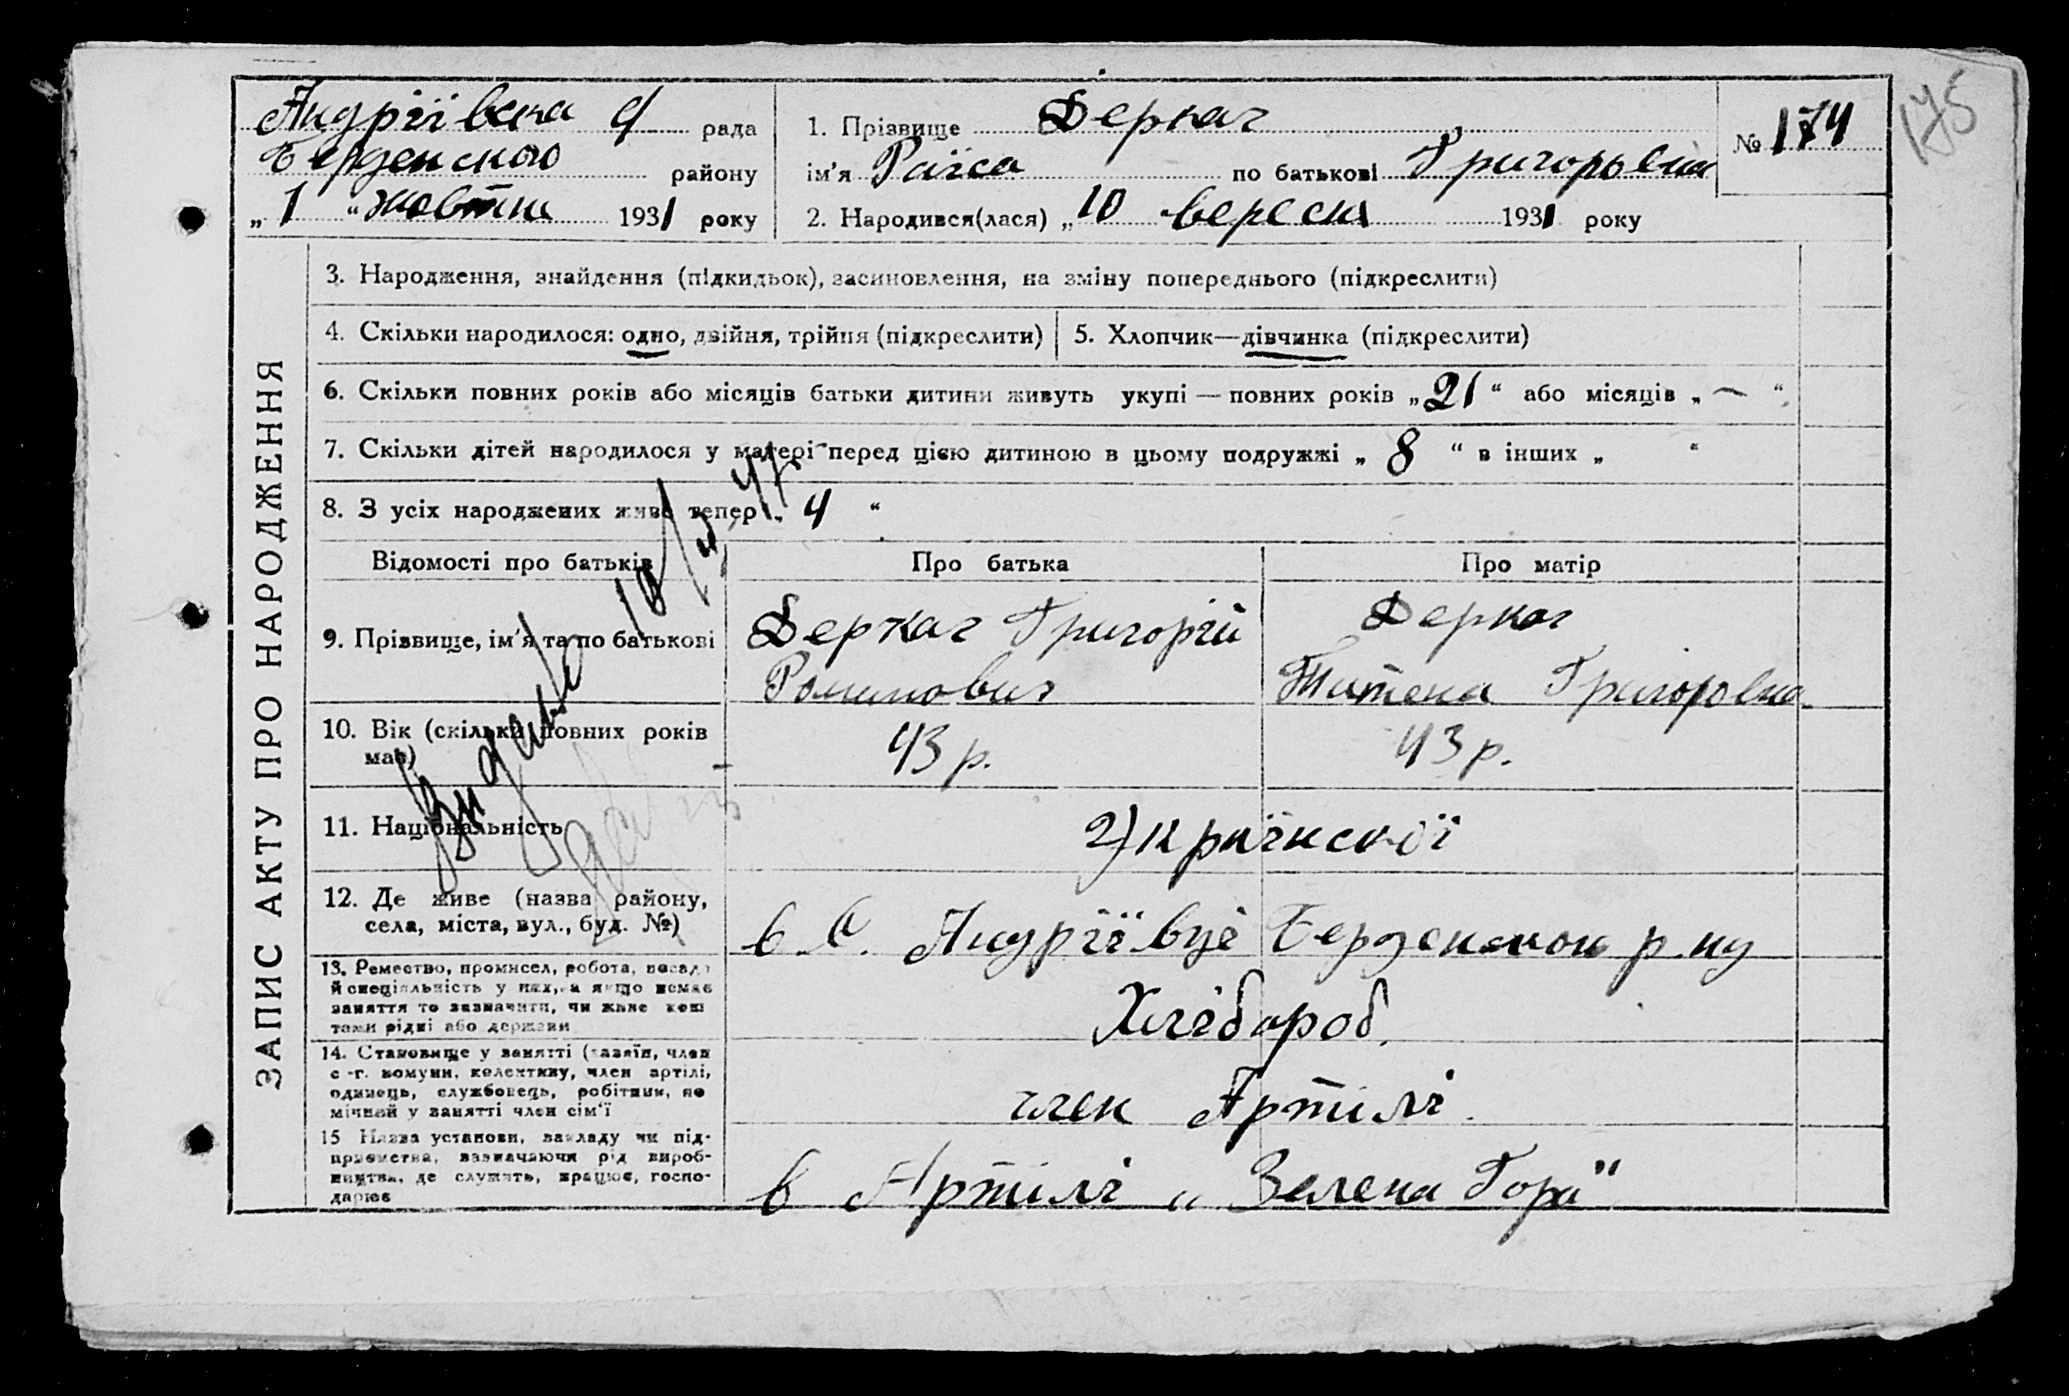 175
Андріївська с/ рада
Берденського району
„ 1 " жовтня 1931 року
1. Прізвище Деркач
ім'я Раїса по батькові Григорьевна
2. Народився(лася) „ 10 вересня 1931 року
№ 174
ЗАПИС АКТУ ПРО НАРОДЖЕННЯ
3. Народження, знайдення (підкидьок), засиновлення, на зміну попереднього (підкреслити)
4. Скільки народилося: одно, двійня, трійня (підкреслити) 5. Хлопчик—дівчинка (підкреслити)
6. Скільки повних років або місяців батьки дитини живуть укупі — повних років „ 21 " або місяців „ — "
7. Скільки дітей народилося у матері перед цією дитиною в цьому подружжі „ 8 " в інших „ "
8. З усіх народжених живе тепер „ 4 "
Відомості про батьків Про батька Про матір
9. Прізвище, ім'я та по батькові
Деркач Григорій
Романович
Деркач
Григоровна
10. Вік (скільки повних років
має)
43 р. 43 р.
11. Національність Українскої
12. Де живе (назва району,
села, міста, вул., буд. №)
в с. Андріївці Берденском р-ну
13. Ремество, промисел, робота, посада
й спеціяльність у них, а якщо немає
заняття то зазначити, чи живе кош
тами рідні або держави
Хлібороб.
14. Становище у занятті (хазяїн, член
с.-г. комуни, колективу, член артілі,
одинець, службовець, робітник, по
мічний у занятті член сім'ї
член Артілі.
15 Назва установи, закладу чи під-
приємства, зазначаючи рід вироб-
ництва, де служить, працює, госпо-
дарює
в Артілі „ Зелена Гора"